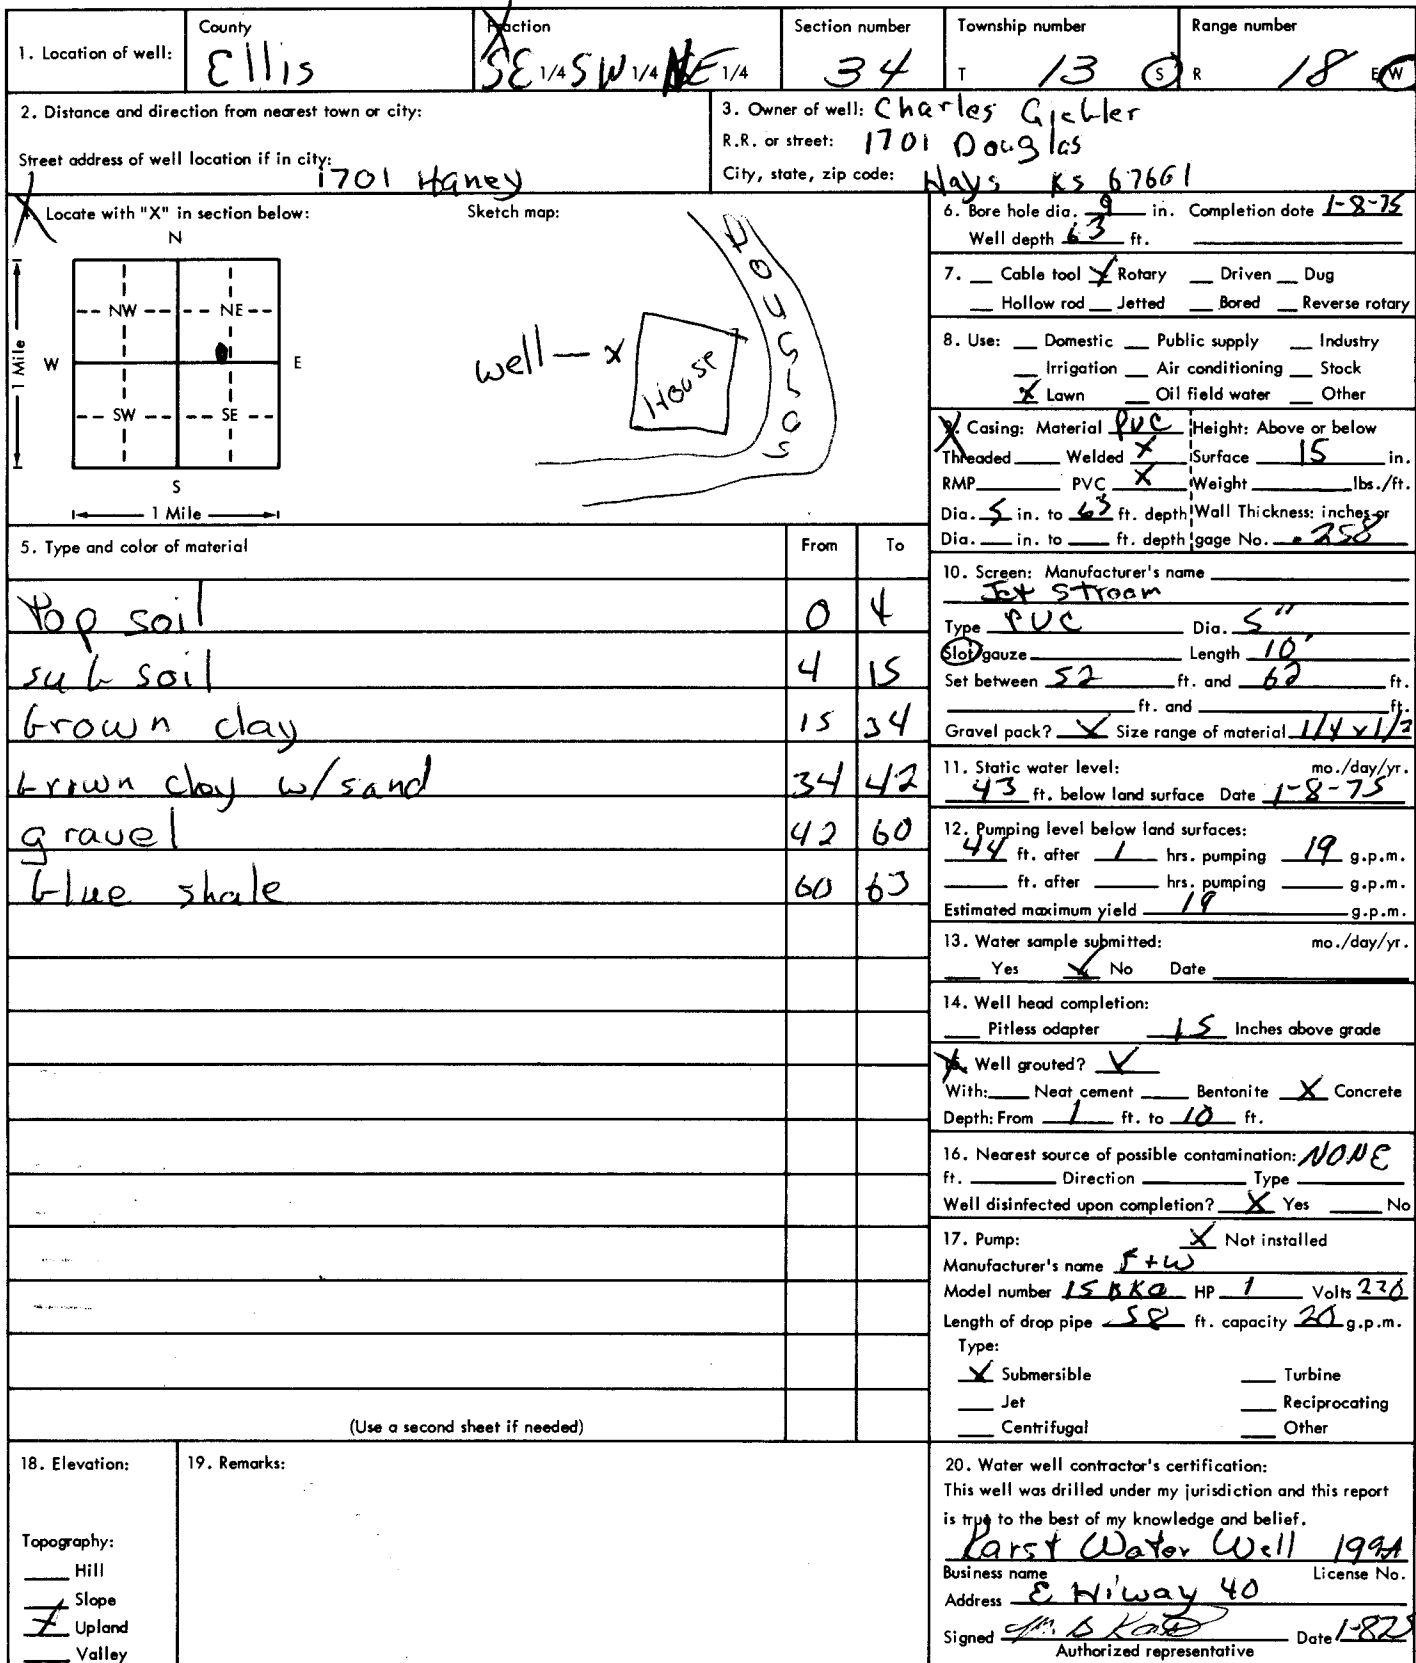 1. Location of well: County Ellis Fraction SE 1/4 SW 1/4 NE 1/4 Section number 34 Township number T 13 S Range number R 18 E W
2. Distance and direction from nearest town or city:
Street address of well location if in city: 1701 Haney
3. Owner of well: Charles
R.R. or street: 1701 Douglas
City, state, zip code: Hays Ks 67601
Locate with "X" in section below:
Sketch map:
N
NW NE
W E
SW SE
S
1 Mile
1 Mile
well — x
House
DOUGLAS
5. Type and color of material From To
Top soil 0 4
sub soil 4 15
brown clay 15 34
brown clay w/sand 34 42
gravel 42 60
blue shale 60 63
(Use a second sheet if needed)
6. Bore hole dia. 9 in. Completion date 1-8-75
Well depth 63 ft.
7. Cable tool X Rotary Driven Dug
Hollow rod Jetted Bored Reverse rotary
8. Use: Domestic Public supply Industry
Irrigation Air conditioning Stock
X Lawn Oil field water Other
9. Casing: Material PVC Height: Above or below
Threaded Welded X Surface 15 in.
RMP PVC X Weight lbs./ft.
Dia. 5 in. to 63 ft. depth Wall Thickness: inches or
Dia. in. to ft. depth gage No. .258
10. Screen: Manufacturer's name
Jet Stream
Type PVC Dia. 5"
Slot/gauze Length 10'
Set between 52 ft. and 62 ft.
ft. and ft.
Gravel pack? X Size range of material 1/4 x 1/2
11. Static water level: mo./day/yr.
43 ft. below land surface Date 1-8-75
12. Pumping level below land surfaces:
44 ft. after 1 hrs. pumping 19 g.p.m.
ft. after hrs. pumping g.p.m.
Estimated maximum yield 19 g.p.m.
13. Water sample submitted: mo./day/yr.
Yes X No Date
14. Well head completion:
Pitless adapter 15 Inches above grade
Well grouted? X
With: Neat cement Bentonite X Concrete
Depth: From 1 ft. to 10 ft.
16. Nearest source of possible contamination: NONE
ft. Direction Type
Well disinfected upon completion? X Yes No
17. Pump: X Not installed
Manufacturer's name F+W
Model number HP 1 Volts 220
Length of drop pipe 58 ft. capacity 20 g.p.m.
Type:
X Submersible Turbine
Jet Reciprocating
Centrifugal Other
18. Elevation:
Topography:
Hill
Slope
X Upland
Valley
19. Remarks:
20. Water well contractor's certification:
This well was drilled under my jurisdiction and this report
is true to the best of my knowledge and belief.
Karst Water Well 199A
Business name License No.
Address E Hiway 40
Signed Date 1-825
Authorized representative